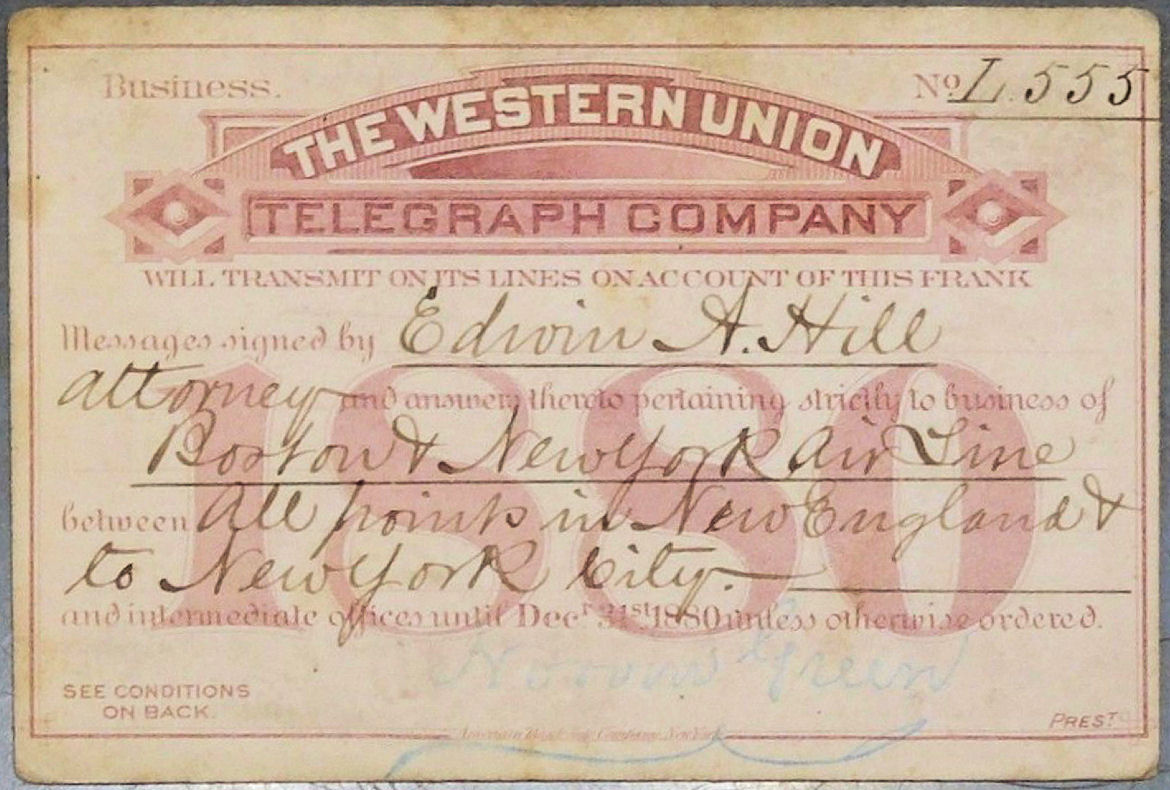 Business.
No L.555
THE WESTERN UNION
TELEGRAPH COMPANY
WILL TRANSMIT ON ITS LINES ON ACCOUNT OF THIS FRANK
Messages signed by Edwin A. Hill
attorney and answers thereto pertaining strictly to business of
Boston & New York Air Line
between All points in New England &
to New York City.
and intermediate offices until Decr 31st 1880 unless otherwise ordered.
1880
Norvin Green
SEE CONDITIONS
ON BACK.
PREST
American Bank Note Company, New York